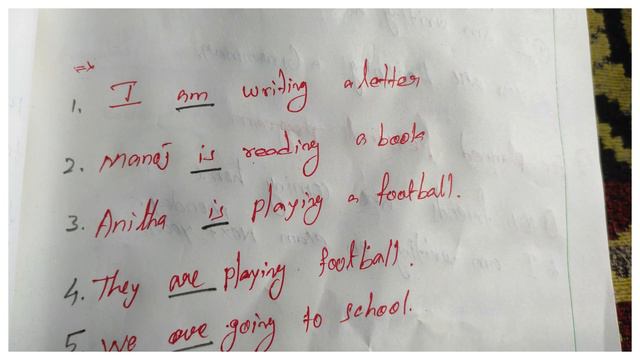 =>
1. I am writing a letter
2. Manoj is reading a book
3. Anitha is playing a football.
4. They are playing football.
5 We are going to school.